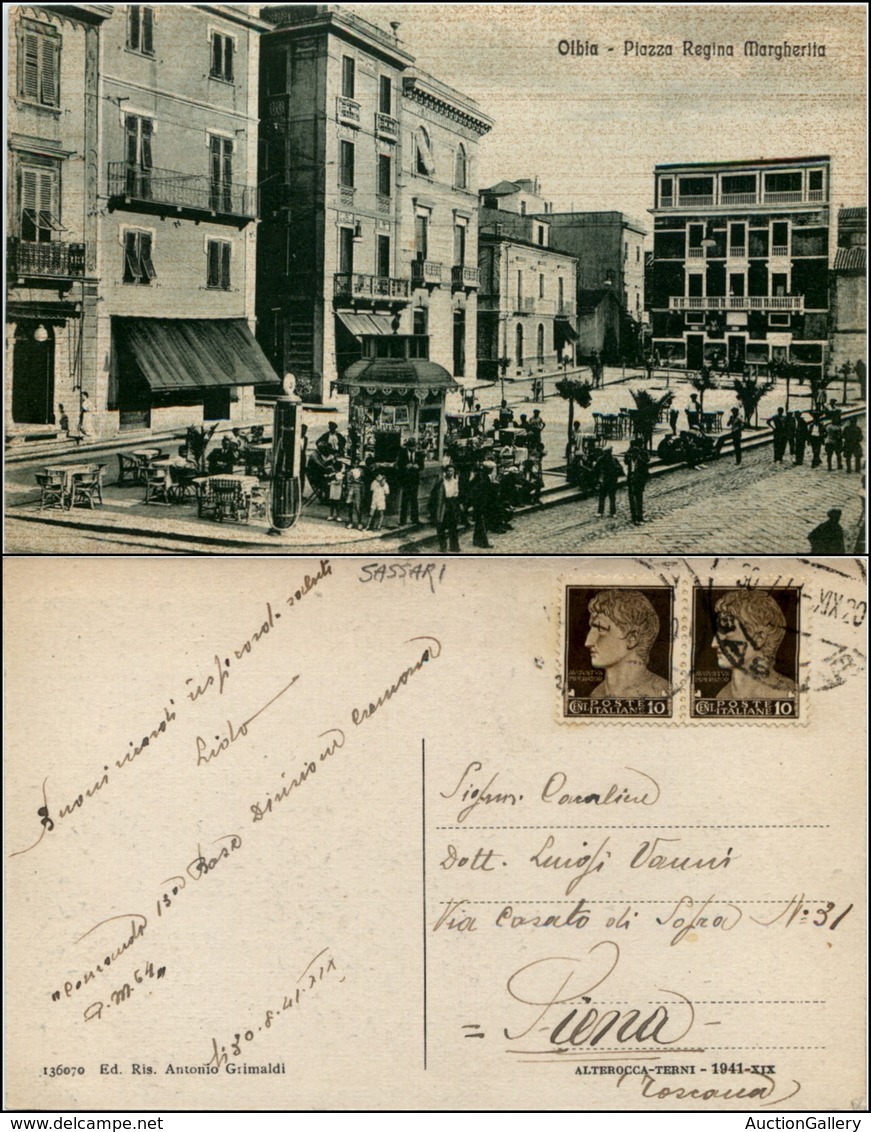 Olbia - Piazza Regina Margherita
SASSARI
Buoni ricordi rispicord. saluti
Lido
"Comando 130a Base Divisione Cremona
P.M. 64"
li 30.8.41.XIX
136070 Ed. Ris. Antonio Grimaldi
CENT. POSTE ITALIANE 10
CENT. POSTE ITALIANE 10
Signor Cavaliere
Dott. Luigi Vanni
Via Casato di Sopra N: 31
= Siena -
ALTEROCCA-TERNI - 1941-XIX
Toscana
AuctionGallery